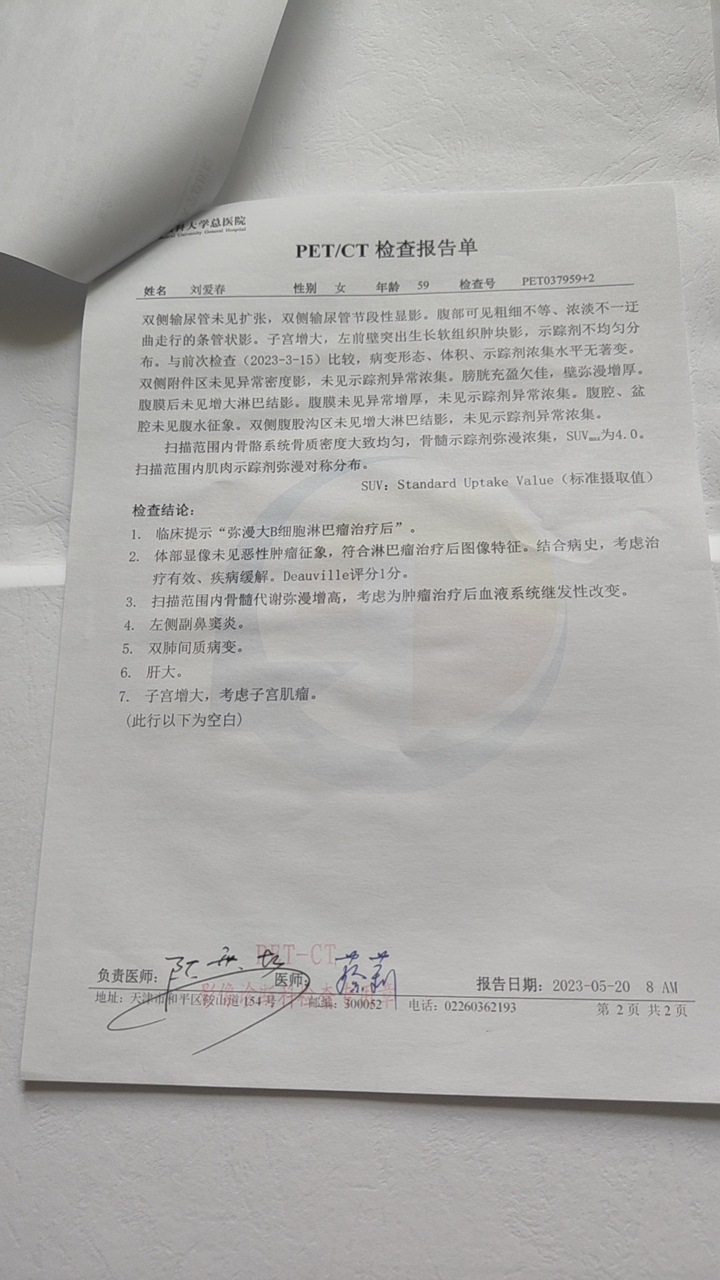 科大学总医院
University General Hospital
PET/CT 检查报告单
姓名 刘爱春 性别 女 年龄 59 检查号 PET037959+2
双侧输尿管未见扩张，双侧输尿管节段性显影。腹部可见粗细不等、浓淡不一迂
曲走行的条管状影。子宫增大，左前壁突出生长软组织肿块影，示踪剂不均匀分
布。与前次检查（2023-3-15）比较，病变形态、体积、示踪剂浓集水平无著变。
双侧附件区未见异常密度影，未见示踪剂异常浓集。膀胱充盈欠佳，壁弥漫增厚。
腹膜后未见增大淋巴结影。腹膜未见异常增厚，未见示踪剂异常浓集。腹腔、盆
腔未见腹水征象。双侧腹股沟区未见增大淋巴结影，未见示踪剂异常浓集。
扫描范围内骨骼系统骨质密度大致均匀，骨髓示踪剂弥漫浓集，SUVmax为4.0。
扫描范围内肌肉示踪剂弥漫对称分布。
SUV：Standard Uptake Value（标准摄取值）
检查结论：
1. 临床提示“弥漫大B细胞淋巴瘤治疗后”。
2. 体部显像未见恶性肿瘤征象，符合淋巴瘤治疗后图像特征。结合病史，考虑治
疗有效、疾病缓解。Deauville评分1分。
3. 扫描范围内骨髓代谢弥漫增高，考虑为肿瘤治疗后血液系统继发性改变。
4. 左侧副鼻窦炎。
5. 双肺间质病变。
6. 肝大。
7. 子宫增大，考虑子宫肌瘤。
(此行以下为空白)
PET-CT
负责医师： 医师： 蔡莉 报告日期：2023-05-20 8 AM
影像诊断科检查专用章
地址：天津市和平区鞍山道154号 邮编：300052 电话：02260362193 第 2页 共2页